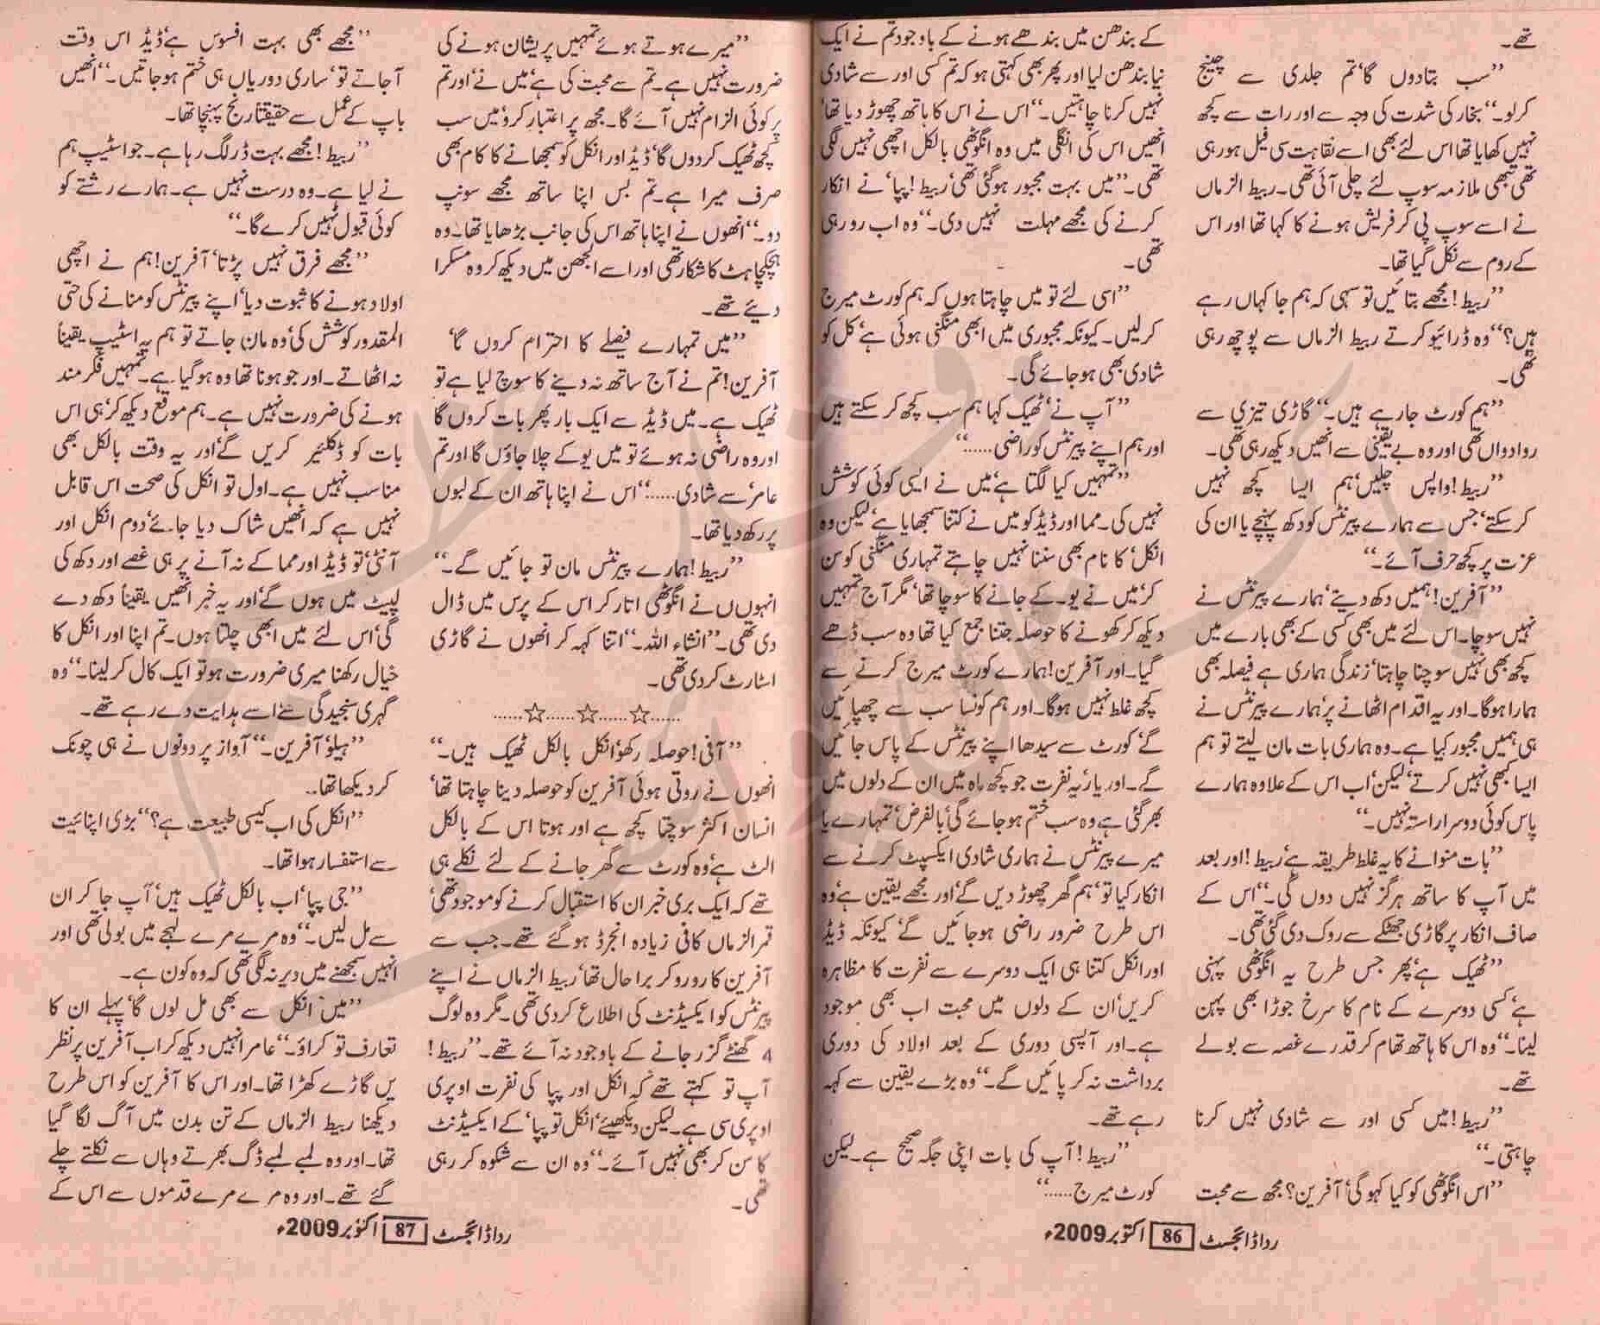 تھے۔
”سب بتادوں گا‘تم جلدی سے چینج
کرلو۔“ بخار کی شدت کی وجہ سے اور رات سے کچھ
نہیں کھایا تھا اس لئے بھی اسے نقاہت سی فیل ہو رہی
تھی تبھی ملازمہ سوپ لئے چلی آئی تھی۔ ربیط الزماں
نے اسے سوپ پی کر فریش ہونے کا کہا تھا اور اس
کے روم سے نکل گیا تھا۔
”ربیط! مجھے بتائیں تو سہی کہ ہم جا کہاں رہے
ہیں؟“ وہ ڈرائیو کرتے ربیط الزماں سے پوچھ رہی
تھی۔
”ہم کورٹ جارہے ہیں۔“ گاڑی تیزی سے
رواد واں تھی اور وہ بے یقینی سے انھیں دیکھ رہی تھی۔
”ربیط! واپس چلیں‘ہم ایسا کچھ نہیں
کرسکتے‘جس سے ہمارے پیرنٹس کو دکھ پہنچے یا ان کی
عزت پر کچھ حرف آئے۔“
”آفرین! ہمیں دکھ دیتے‘ہمارے پیرنٹس نے
نہیں سوچا۔ اس لئے میں بھی کسی کے بھی بارے میں
کچھ بھی نہیں سوچنا چاہتا‘زندگی ہماری ہے فیصلہ بھی
ہمارا ہوگا۔ اور یہ اقدام اٹھانے پر‘ہمارے پیرنٹس نے
ہی‘ہمیں مجبور کیا ہے۔ وہ ہماری بات مان لیتے تو ہم
ایسا کبھی نہیں کرتے‘لیکن‘اب اس کے علاوہ ہمارے
پاس کوئی دوسرا راستہ نہیں۔“
”بات منوانے کا یہ غلط طریقہ ہے‘ربیط! اور بعد
میں آپ کا ساتھ ہرگز نہیں دوں گی۔“ اس کے
صاف انکار پر گاڑی جھٹکے سے روک دی گئی تھی۔
”ٹھیک ہے‘پھر جس طرح یہ انگوٹھی پہنی
ہے‘کسی دوسرے کے نام کا سرخ جوڑا بھی پہن
لینا۔“ وہ اس کا ہاتھ تھام کر قدرے غصہ سے بولے
تھے۔
”ربیط! میں کسی اور سے شادی نہیں کرنا
چاہتی۔“
”اس انگوٹھی کو کیا کہوگی‘آفرین؟ مجھ سے محبت
کے بندھن میں بندھے ہونے کے باوجود تم نے ایک
نیا بندھن لیا اور پھر بھی کہتی ہو کہ تم کسی اور سے شادی
نہیں کرنا چاہتیں۔“ اس نے اس کا ہاتھ چھوڑ دیا تھا‘
انھیں اس کی انگلی میں وہ انگوٹھی بالکل اچھی نہیں لگی
تھی۔ ”میں بہت مجبور ہوگئی تھی‘ربیط! پپا‘نے انکار
کرنے کی مجھے مہلت نہیں دی۔“ وہ اب رو رہی
تھی۔
”اسی لئے تو میں چاہتا ہوں کہ ہم کورٹ میرج
کرلیں۔ کیونکہ مجبوری میں ابھی منگنی ہوئی ہے‘کل کو
شادی بھی ہو جائے گی۔
”آپ نے‘ٹھیک کہا ہم سب کچھ کر سکتے ہیں
اور ہم اپنے پیرنٹس کو راضی......“
”تمہیں کیا لگتا ہے‘میں نے ایسی کوئی کوشش
نہیں کی۔ مما اور ڈیڈ کو میں نے کتنا سمجھایا ہے‘لیکن وہ
انکل‘ کا نام بھی سننا نہیں چاہتے تمہاری منگنی کو سن
کر‘میں نے یو۔ کے جانے کا سوچا تھا‘مگر آج تمہیں
دیکھ کر کھونے کا حوصلہ جتنا جمع کیا تھا وہ سب ڈھے
گیا۔ اور آفرین! ہمارے کورٹ میرج کرنے سے
کچھ غلط نہیں ہوگا۔ اور ہم کونسا سب سے چھپائیں
گے‘کورٹ سے سیدھا اپنے پیرنٹس کے پاس جائیں
گے۔ اور یار‘یہ نفرت جو کچھ ماہ میں ان کے دلوں میں
بھر گئی ہے وہ سب ختم ہو جائے گی‘بالفرض‘تمہارے یا
میرے پیرنٹس نے ہماری شادی ایکسپٹ کرنے سے
انکار کیا تو‘ہم گھر چھوڑ دیں گے‘اور مجھے یقین ہے‘وہ
اس طرح ضرور راضی ہوجائیں گے‘کیونکہ ڈیڈ
اور انکل کتنا ہی ایک دوسرے سے نفرت کا مظاہرہ
کریں‘ان کے دلوں میں محبت اب بھی موجود
ہے۔ اور آپسی دوری کے بعد اولاد کی دوری
برداشت نہ کر پائیں گے۔“ وہ بڑے یقین سے کہہ
رہے تھے۔
”ربیط! آپ کی بات اپنی جگہ صحیح ہے۔ لیکن
کورٹ میرج......“
ردا ڈائجسٹ 86 اکتوبر 2009ء
”میرے ہوتے ہوئے‘تمہیں پریشان ہونے کی
ضرورت نہیں ہے۔ تم سے محبت کی ہے‘میں نے‘اور تم
پر کوئی الزام نہیں آئے گا۔ مجھ پر اعتبار کرو‘میں سب
کچھ ٹھیک کردوں گا‘ڈیڈ اور انکل کو سمجھانے کا کام بھی
صرف میرا ہے۔ تم بس اپنا ساتھ مجھے سونپ
دو۔“ انھوں نے اپنا ہاتھ اس کی جانب بڑھایا تھا۔ وہ
ہچکچاہٹ کا شکار تھی اور اسے الجھن میں دیکھ کر وہ مسکرا
دیئے تھے۔
”میں تمہارے فیصلے کا احترام کروں گا‘
آفرین! تم نے آج ساتھ نہ دینے کا سوچ لیا ہے تو
ٹھیک ہے۔ میں ڈیڈ سے ایک بار پھر بات کروں گا
اور وہ راضی نہ ہوئے تو میں یوکے چلا جاؤں گا اور تم
عامر‘سے شادی......“ اس نے اپنا ہاتھ ان کے لبوں
پر رکھ دیا تھا۔
”ربیط! ہمارے پیرنٹس مان تو جائیں گے۔“
انہوں‌ں نے انگوٹھی اتار کر اس کے پرس میں ڈال
دی تھی۔ ”انشاء اللہ۔“ اتنا کہہ کر انھوں نے گاڑی
اسٹارٹ کر دی تھی۔
......☆......☆......☆......
”آفی! حوصلہ رکھو‘انکل بالکل ٹھیک ہیں۔“
انھوں نے روتی ہوئی آفرین کو حوصلہ دینا چاہتا تھا‘
انسان اکثر سوچتا کچھ ہے اور ہوتا اس کے بالکل
الٹ ہے‘وہ کورٹ سے گھر جانے کے لئے نکلے ہی
تھے کہ ایک بری خبر ان کا استقبال کرنے کو موجود تھی‘
قمر الزماں کافی زیادہ انجرڈ ہو گئے تھے۔ جب سے
آفرین کا رو رو کر برا حال تھا‘ربیط الزماں نے اپنے
پیرنٹس کو ایکسیڈنٹ کی اطلاع کر دی تھی۔ مگر وہ لوگ
4 گھنٹے گزر جانے کے باوجود نہ آئے تھے۔ ”ربیط!
آپ تو کہتے تھے کہ انکل اور پپا کی نفرت اوپری
اوپری سی ہے۔ لیکن دیکھیئے‘انکل تو پپا‘ کے ایکسیڈنٹ
کا سن کر بھی نہیں آئے۔“ وہ ان سے شکوہ کر رہی
تھی۔
”مجھے بھی بہت افسوس ہے‘ڈیڈ اس وقت
آجاتے تو‘ساری دوریاں ہی ختم ہو جاتیں۔“ انھیں
باپ کے عمل سے حقیقتا رنج پہنچا تھا۔
”ربیط! مجھے بہت ڈر لگ رہا ہے۔ جو اسٹیپ ہم
نے لیا ہے۔ وہ درست نہیں ہے۔ ہمارے رشتے کو
کوئی قبول نہیں کرے گا۔“
”مجھے فرق نہیں پڑتا‘آفرین! ہم نے اچھی
اولاد ہونے کا ثبوت دیا‘اپنے پیرنٹس کو منانے کی حتی
المقدور کوشش کی‘وہ مان جاتے تو ہم یہ اسٹیپ یقیناً
نہ اٹھاتے۔ اور جو ہونا تھا وہ ہو گیا ہے۔ تمہیں فکر مند
ہونے کی ضرورت نہیں ہے۔ ہم موقع دیکھ کر‘ہی اس
بات کو ڈکلئیر کریں گے‘اور یہ وقت بالکل بھی
مناسب نہیں ہے۔ اول تو انکل کی صحت اس قابل
نہیں ہے کہ انھیں شاک دیا جائے‘دوم انکل اور
آنٹی‘تو ڈیڈ اور مما کے نہ آنے پر ہی غصے اور دکھ کی
لپیٹ میں ہوں گے‘اور یہ خبر انھیں یقیناً دکھ دے
گی‘اس لئے میں ابھی چلتا ہوں۔ تم اپنا اور انکل کا
خیال رکھنا میری ضرورت ہو تو ایک کال کر لینا۔“ وہ
گہری سنجیدگی سے اسے ہدایت دے رہے تھے۔
”ہیلو‘آفرین۔“ آواز پر دونوں نے ہی چونک
کر دیکھا تھا۔
”انکل کی اب کیسی طبیعت ہے؟“ بڑی اپنائیت
سے استفسار ہوا تھا۔
”جی پپا‘اب بالکل ٹھیک ہیں‘آپ جا کر ان
سے مل لیں۔“ وہ مرے مرے لہجے میں بولی تھی اور
انہیں سمجھنے میں دیر نہ لگی تھی کہ وہ کون ہے۔
”میں انکل سے بھی مل لوں گا‘پہلے ان کا
تعارف تو کراؤ۔“ عامر انہیں دیکھ کر اب آفرین پر نظر
یں گاڑے کھڑا تھا۔ اور اس کا آفرین کو اس طرح
دیکھنا ربیط الزماں کے تن بدن میں آگ لگا گیا
تھا۔ اور وہ لمبے لمبے ڈگ بھرتے وہاں سے نکلتے چلے
گئے تھے۔ اور وہ مرے مرے قدموں سے اس کے
ردا ڈائجسٹ 87 اکتوبر 2009ء